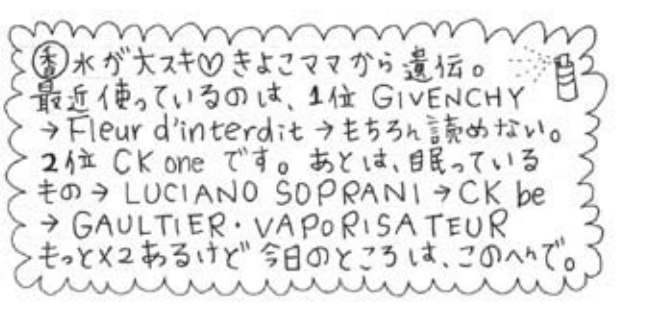 香水が大スキ♡きよこママから遺伝。
最近使っているのは、1位 GIVENCHY
→Fleur d'interdit→もちろん読めない。
2位 CK one です。あとは、眠っている
もの→LUCIANO SOPRANI→CK be
→GAULTIER・VAPORISATEUR
もっと×2あるけど今日のところは、このへんで。